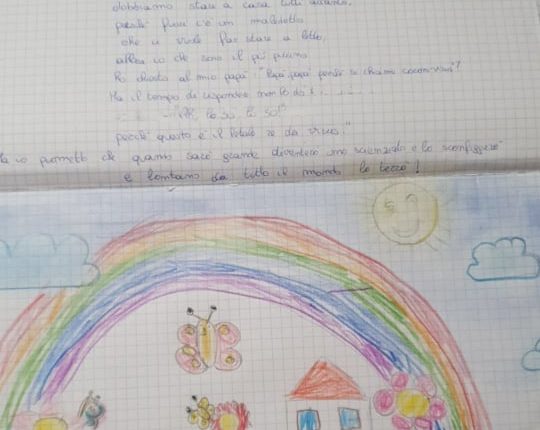 dobbiamo stare a casa tutti quanti,
perché fuori c'è un maledetto
che ci vuole far stare a letto,
allora io che sono il più piccino
ho chiesto al mio papà: "Papà, papà perché si chiama coronavirus?
Ma il tempo di rispondere non lo do
lo so, lo so!"
perché questo è il re dei virus."
Ma io prometto che quando sarò grande diventerò uno scienziato e lo sconfiggerò
e lontano da tutto il mondo lo terrò!